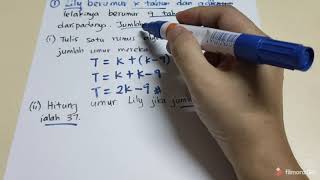 ① Lily berumur k tahun dan
lelakinya berumur 9 tahun
daripadanya. Jumlah
(i) Tulis satu rumus
jumlah umur mereka
T = k + (k-9)
T = k + k - 9
T = 2k - 9
(ii) Hitung umur Lily jika jumlah
ialah 37.
filmora